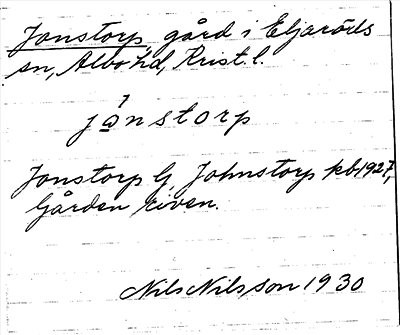 Jonstorp, gård i Eljaröds
sn, Albo hd, Krist. l.
jo̲nstorp
Jonstorp G, Johnstorp kb 1927,
Gården riven.
Nils Nilsson 1930